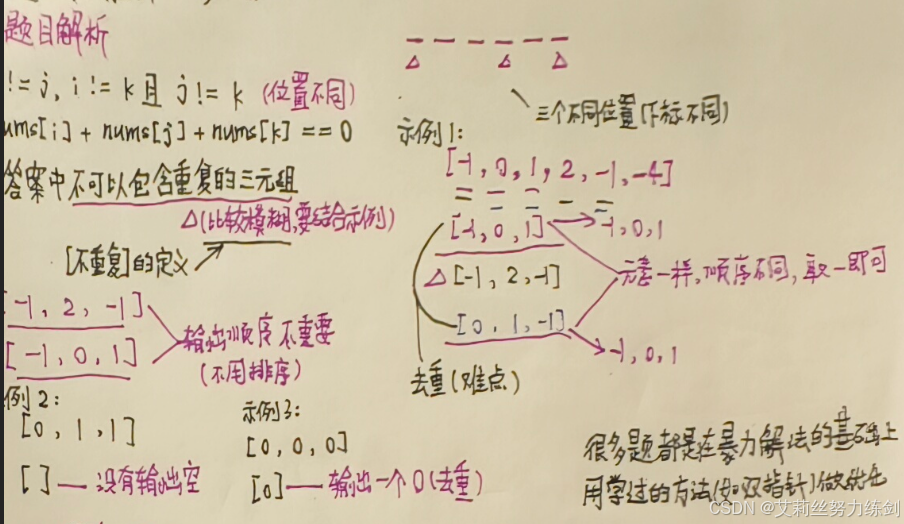 题目解析
!= j, i != k 且 j != k (位置不同)
ums[i] + nums[j] + nums[k] == 0
答案中不可以包含重复的三元组
△(比较模糊,要结合示例)
[不重复]的定义
-1, 2, -1]
[-1, 0, 1]
输出顺序不重要
(不用排序)
例2:
[0, 1, 1]
[ ] — 没有输出空
示例3:
[0, 0, 0]
[0] — 输出一个0(去重)
△ △ △
三个不同位置(下标不同)
示例1:
[-1, 0, 1, 2, -1, -4]
[-1, 0, 1] → -1, 0, 1
△ [-1, 2, -1]
[0, 1, -1] → -1, 0, 1
元素一样,顺序不同,取一即可
去重(难点)
很多题都是在暴力解法的基础上
用学过的方法(如双指针)做优化
CSDN @艾莉丝努力练剑